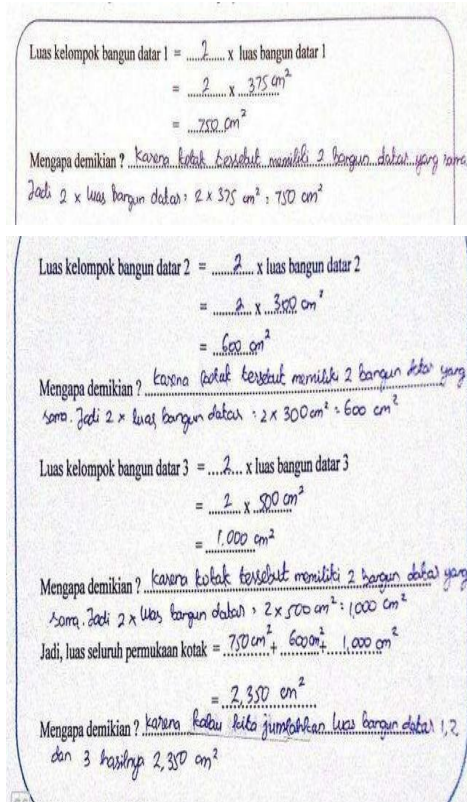 Luas kelompok bangun datar 1 = 2 x luas bangun datar 1
= 2 x 375 cm²
= 750 cm²
Mengapa demikian ? Karena kotak tersebut memiliki 2 bangun datar yang sama
Jadi 2 x luas bangun datar = 2 x 375 cm² = 750 cm²
Luas kelompok bangun datar 2 = 2 x luas bangun datar 2
= 2 x 300 cm²
= 600 cm²
Mengapa demikian ? Karena kotak tersebut memiliki 2 bangun datar yang
sama. Jadi 2 x luas bangun datar = 2 x 300 cm² = 600 cm²
Luas kelompok bangun datar 3 = 2 x luas bangun datar 3
= 2 x 500 cm²
= 1.000 cm²
Mengapa demikian ? karena kotak tersebut memiliki 2 bangun datar yang
sama. Jadi 2 x luas bangun datar = 2 x 500 cm² = 1,000 cm²
Jadi, luas seluruh permukaan kotak = 750 cm² + 600 cm² + 1,000 cm²
= 2,350 cm²
Mengapa demikian ? karena kalau kita jumlahkan luas bangun datar 1, 2
dan 3 hasilnya 2,350 cm²